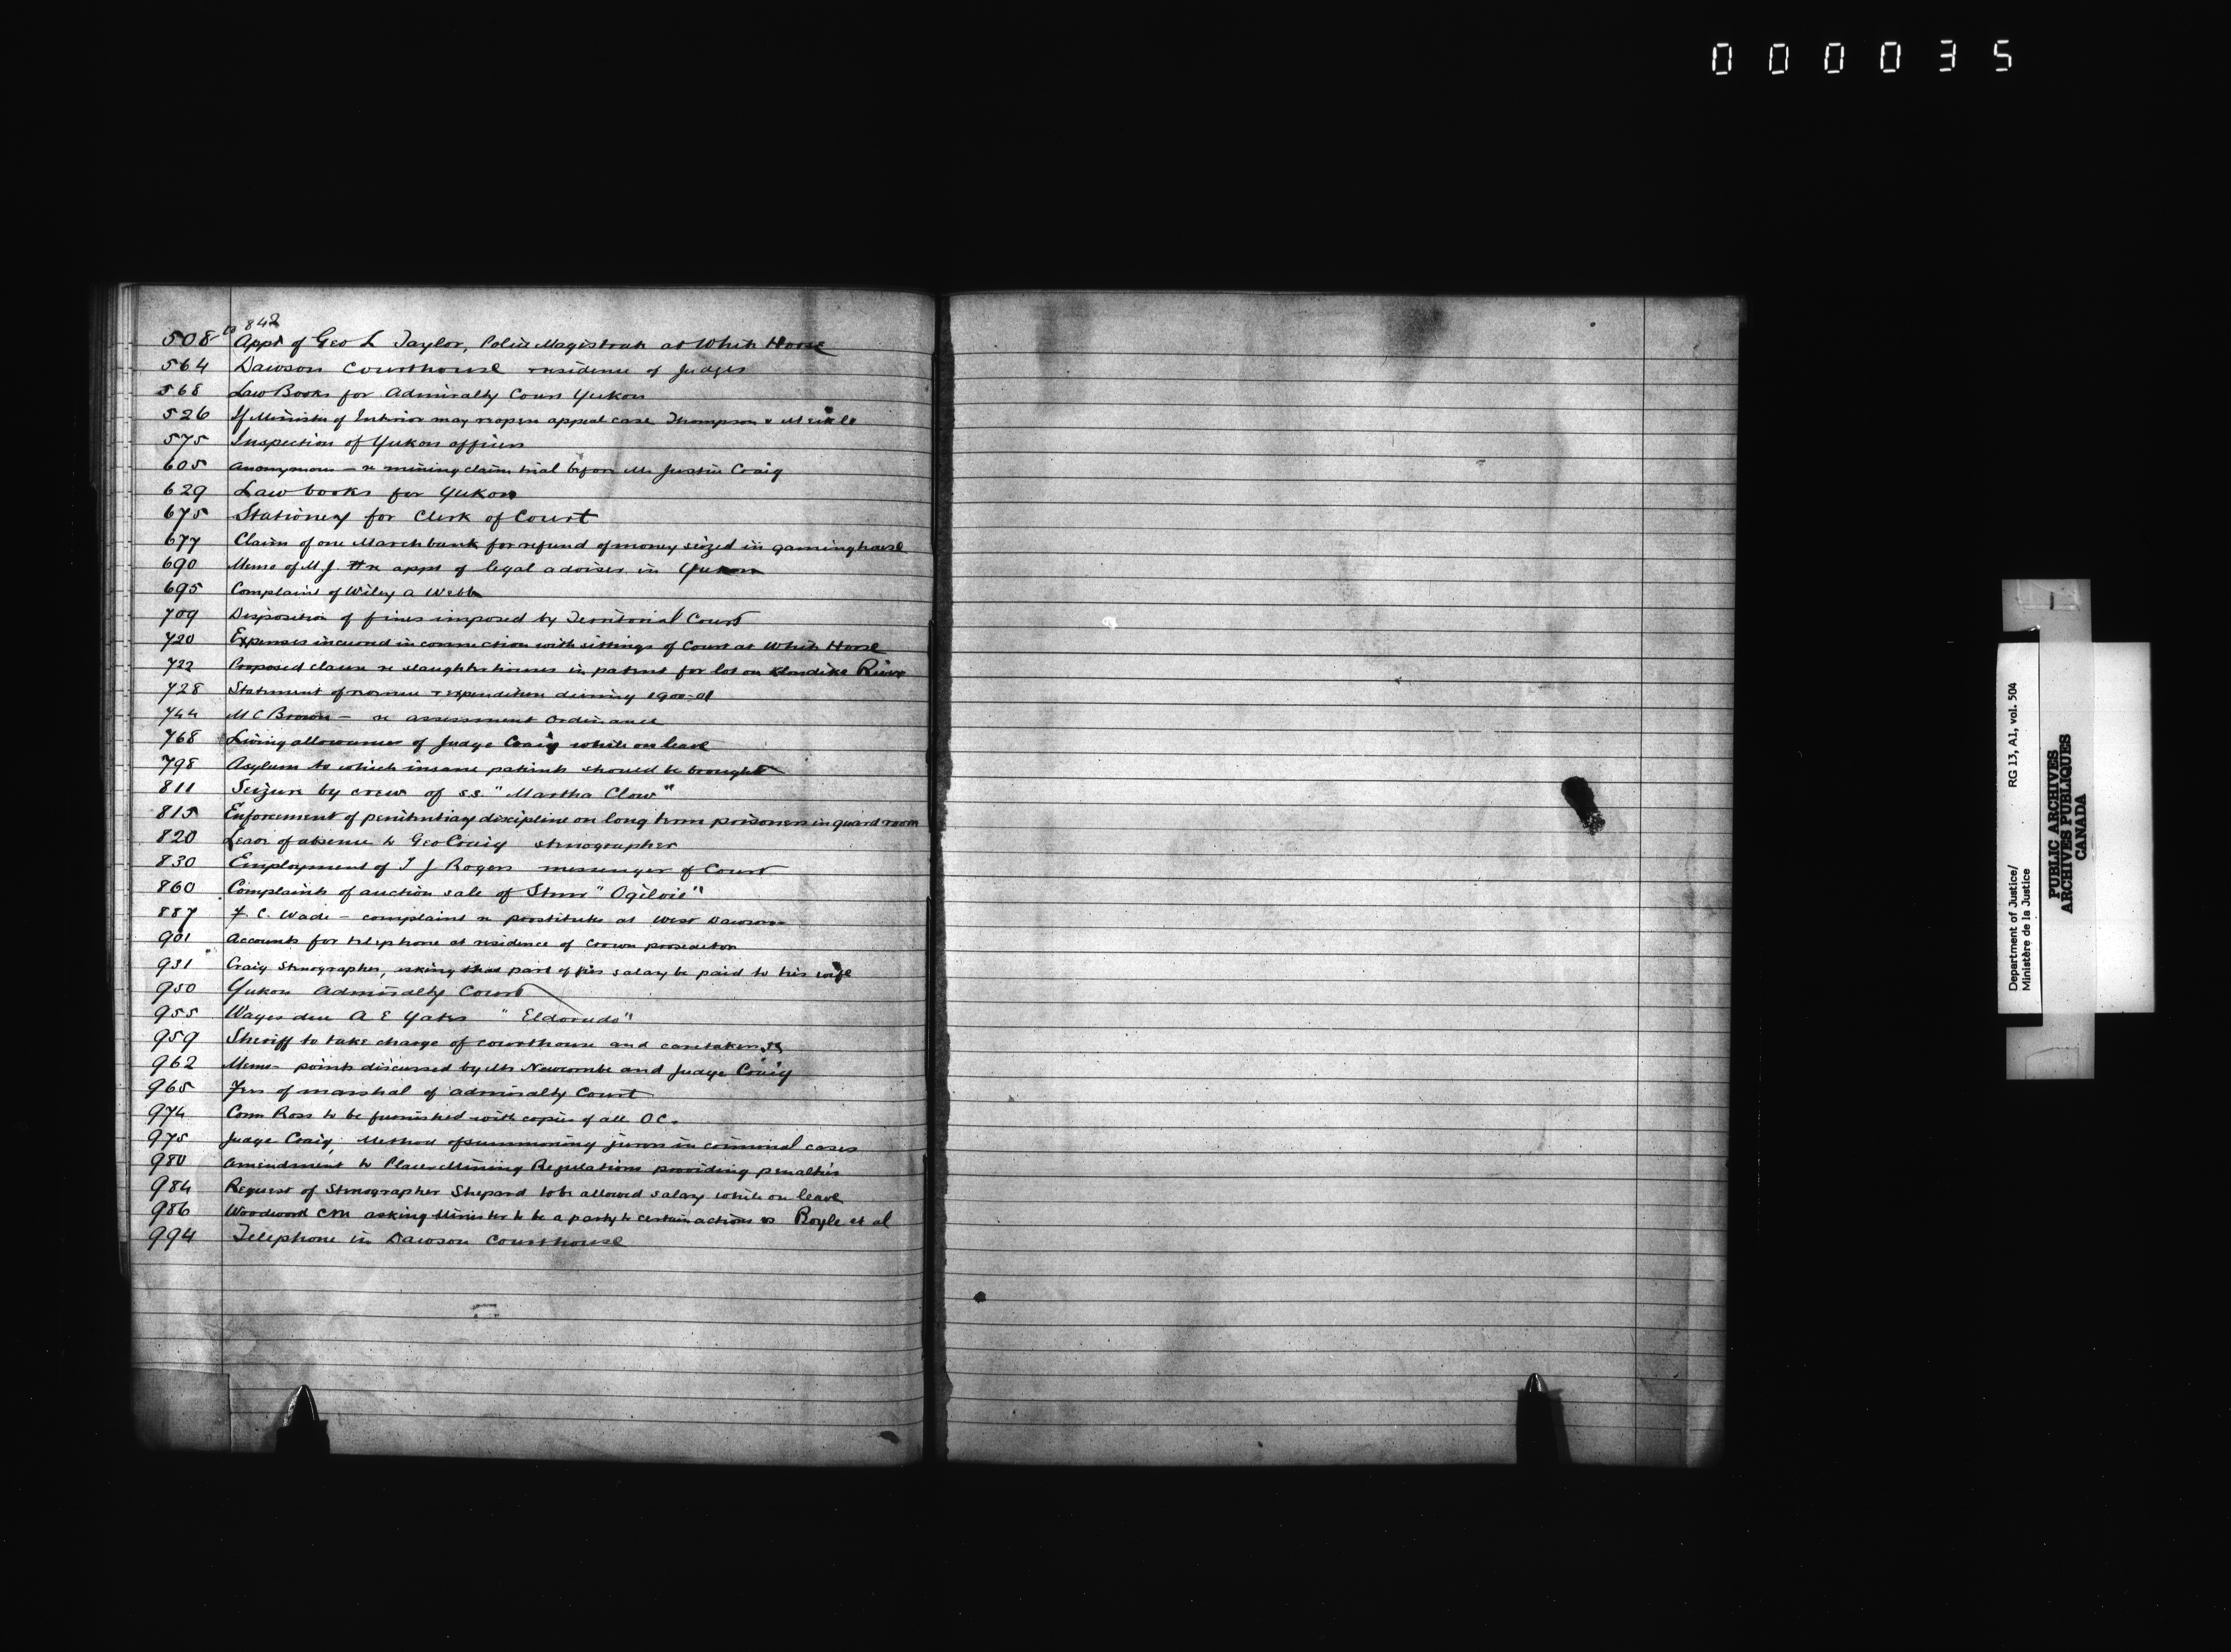 000035
to 842
508 Appt of Geo L Taylor, Police Magistrate at White Horse
564 Dawson Courthouse residence of Judges
568 Law Books for Admiralty Court Yukon
526 If Minister of Interior may reopen appeal case Thompson v Meikle
575 Inspection of Yukon offices
605 Anonymous – re mining claim trial before Mr Justice Craig
629 Law books for Yukon
675 Stationery for Clerk of Court
677 Claim of one Marchbank for refund of money seized in gaming house
690 Memo of M.J. re appt of legal adviser in Yukon
695 Complaint of Wiley A Webb
709 Disposition of fines imposed by Territorial Court
720 Expenses incurred in connection with sittings of Court at White Horse
722 Proposed clause re slaughterhouses in patent for lot on Klondike River
728 Statement of revenue & expenditure during 1900-01
744 McBrown – re assessment Ordinance
768 Living allowance of Judge Craig while on leave
798 Asylum to which insane patients should be brought
811 Seizure by crew of s.s. "Martha Clow"
815 Enforcement of penitentiary discipline on long term prisoners in guard room
820 Leave of absence to Geo Craig stenographer
830 Employment of T J Rogers messenger of Court
860 Complaint of auction sale of Stmr "Ogilvie"
887 F. C. Wade – complaint re prostitutes at West Dawson
901 Accounts for telephone at residence of Crown prosecutor
931 Craig Stenographer, asking that part of his salary be paid to his wife
950 Yukon Admiralty Court
955 Wages due A E Yates "Eldorado"
959 Sheriff to take charge of courthouse and caretakers
962 Memo – points discussed by Mr Newcombe and Judge Craig
965 Fees of marshal of admiralty Court
974 Com Ross to be furnished with copies of all OC.
975 Judge Craig, Method of summoning jurors in criminal cases
980 Amendment to Placer Mining Regulations providing penalties
984 Request of Stenographer Shepard to be allowed salary while on leave
986 Woodword CM asking Minister to be a party to certain actions vs Boyle et al
994 Telephone in Dawson Courthouse
Department of Justice/ RG 13, A1, vol. 504
Ministère de la Justice
PUBLIC ARCHIVES
ARCHIVES PUBLIQUES
CANADA